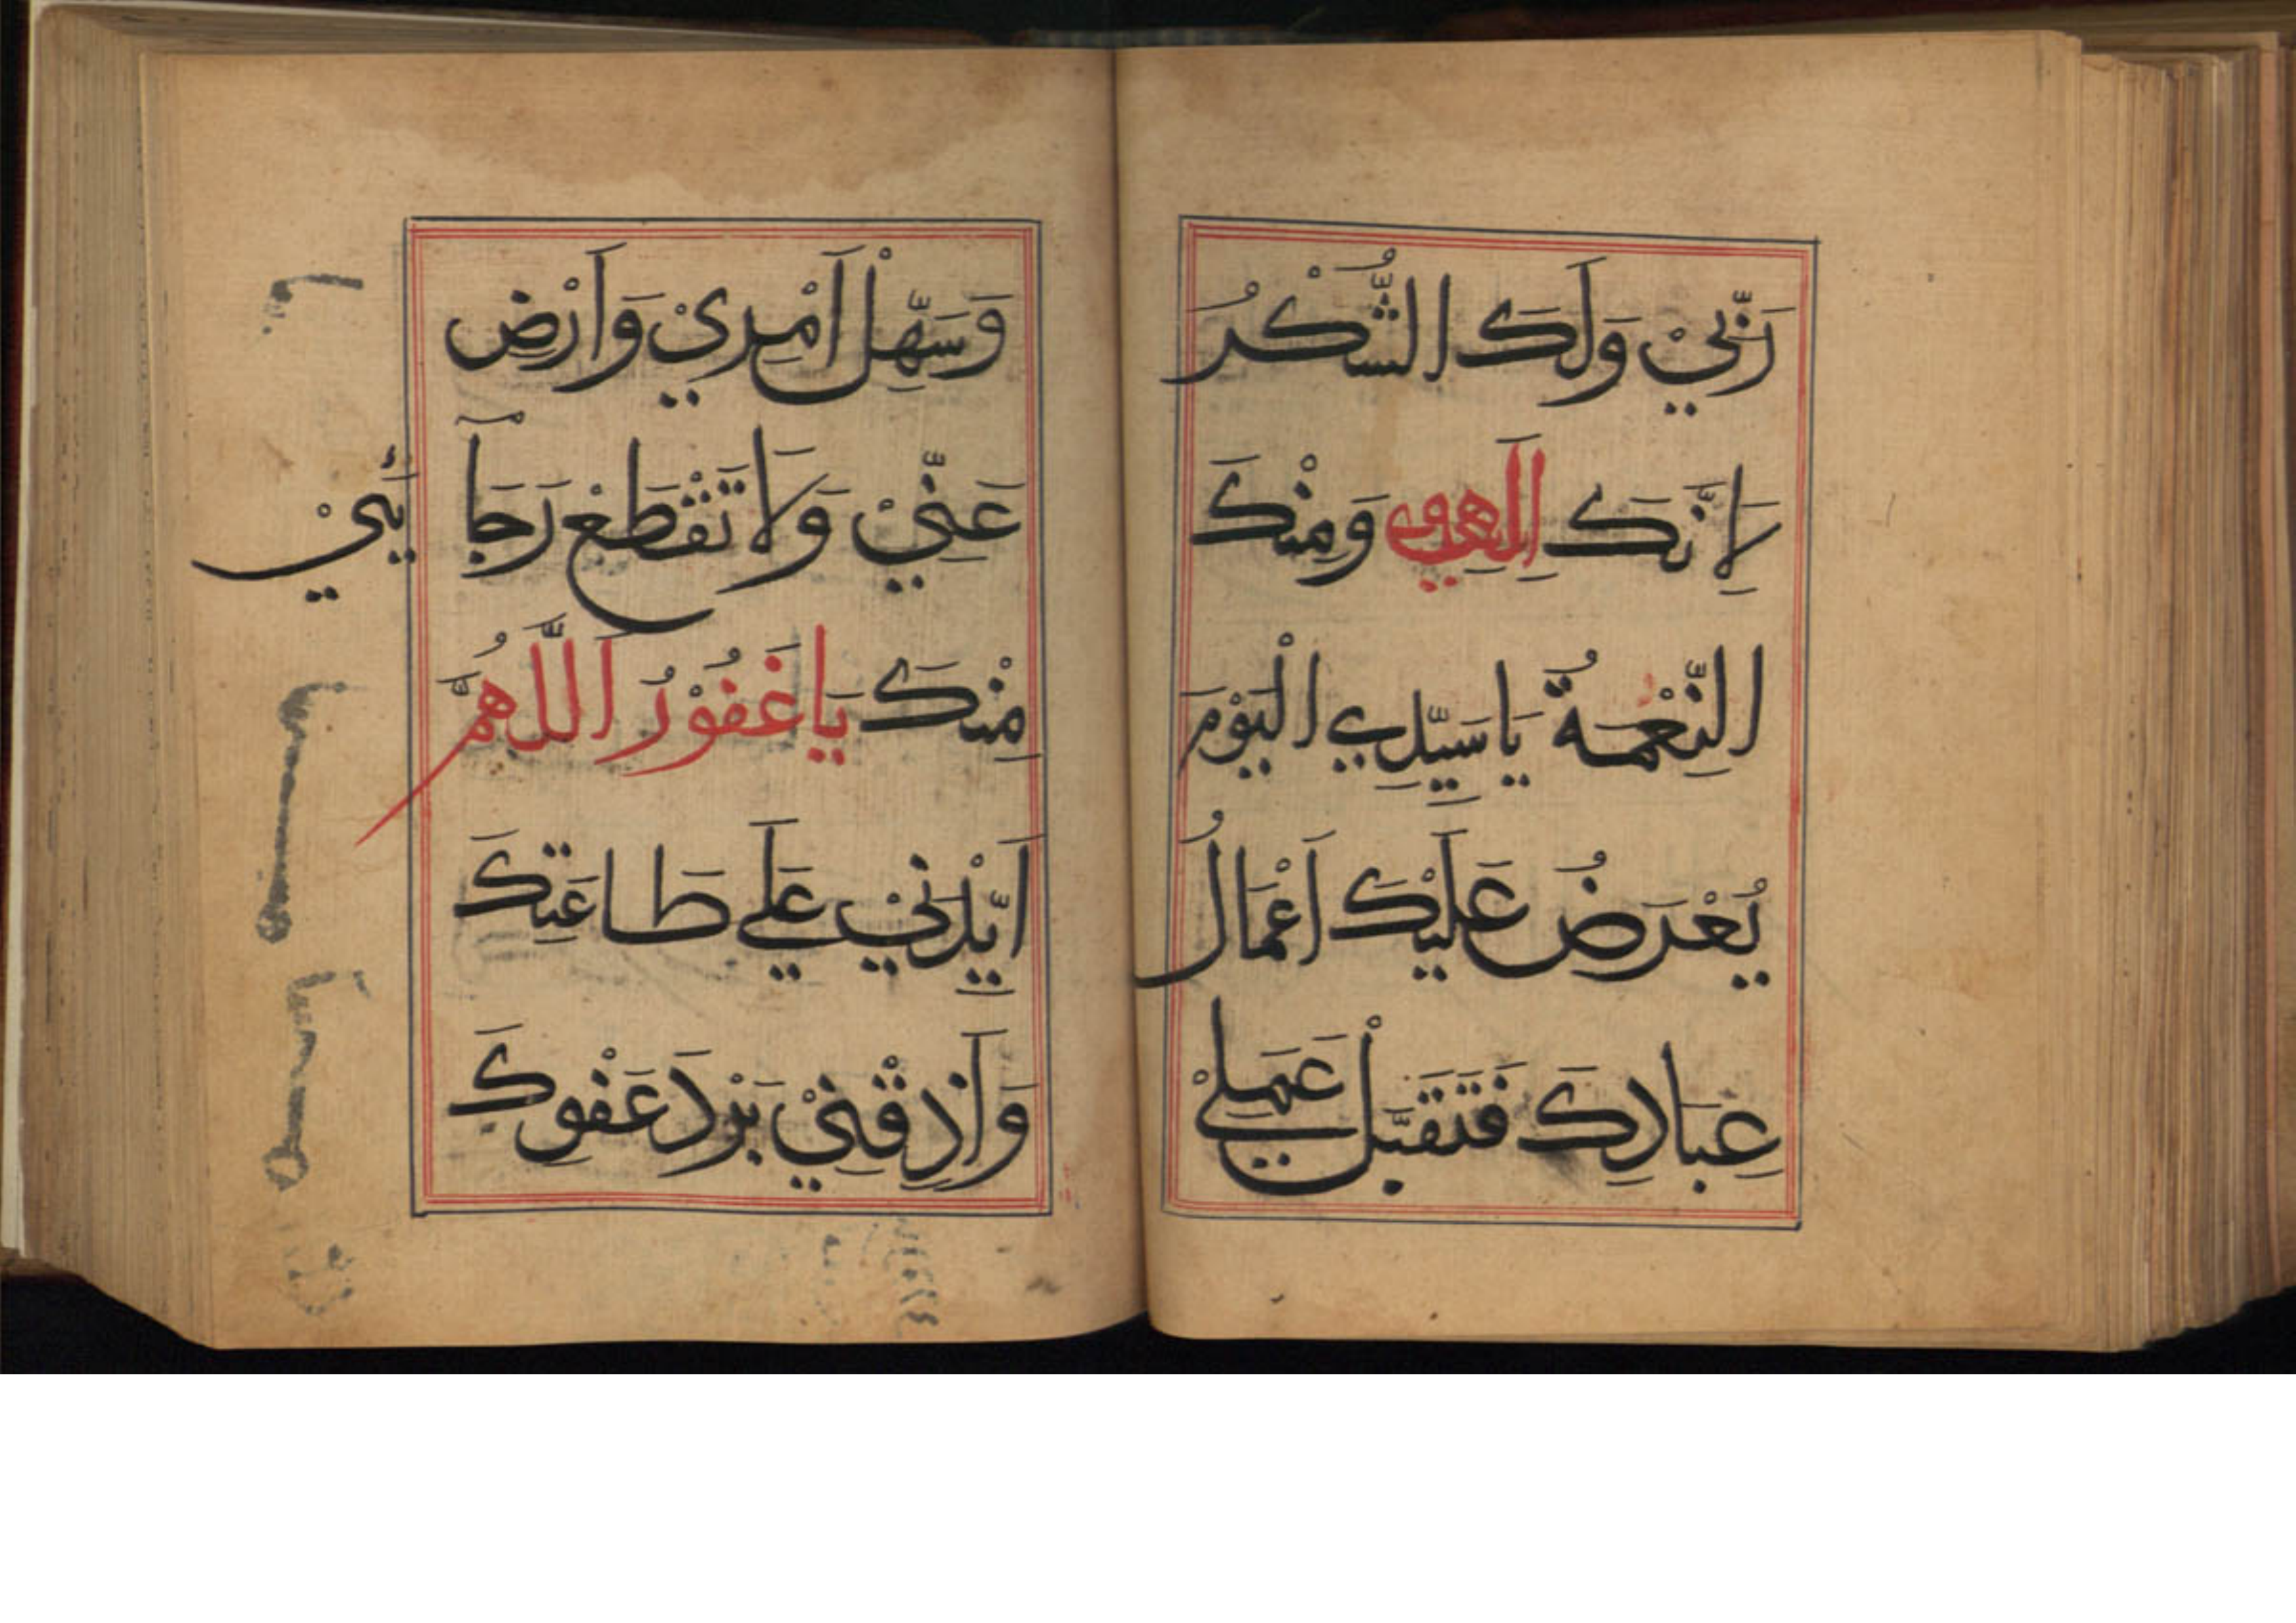 رَبِّيْ وَلَكَ الشُّكْرُ
لِاَنَّكَ اِلَهِي وَمِنْكَ
النِّعْمَةُ يَا سَيِّدِي الْيَوْمَ
يُعْرَضُ عَلَيْكَ اَعْمَالُ
عِبَادِكَ فَتَقَبَّلْ عَمَلِيْ
وَسَهِّلْ اَمْرِيْ وَاَرْضِ
عَنِّيْ وَلَا تَقْطَعْ رَجَآئِيْ
مِنْكَ يَا غَفُوْرُ اَللَّهُمَّ
اَيِّدْنِيْ عَلَي طَاعَتِكَ
وَاَذِقْنِيْ بَرْدَ عَفْوِكَ